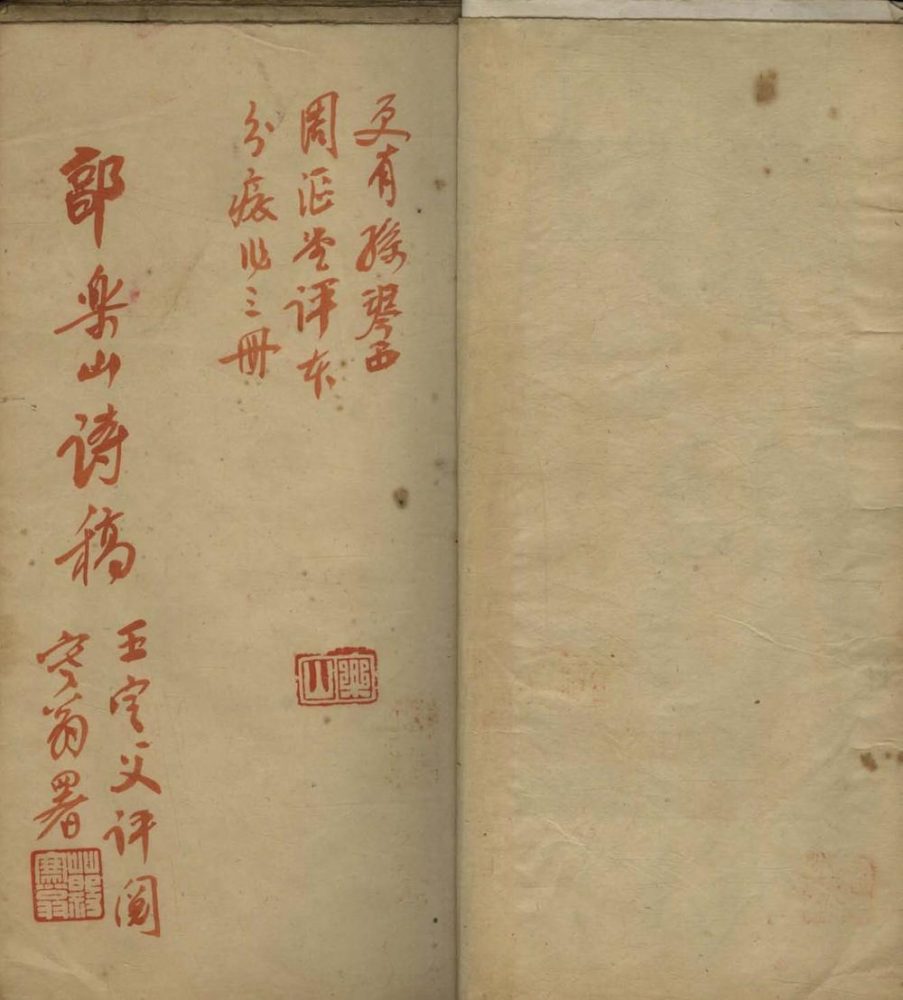 更有孫琴西
周堂評本
分三冊
樂山
樂山詩稿
王定父評閱
翁署